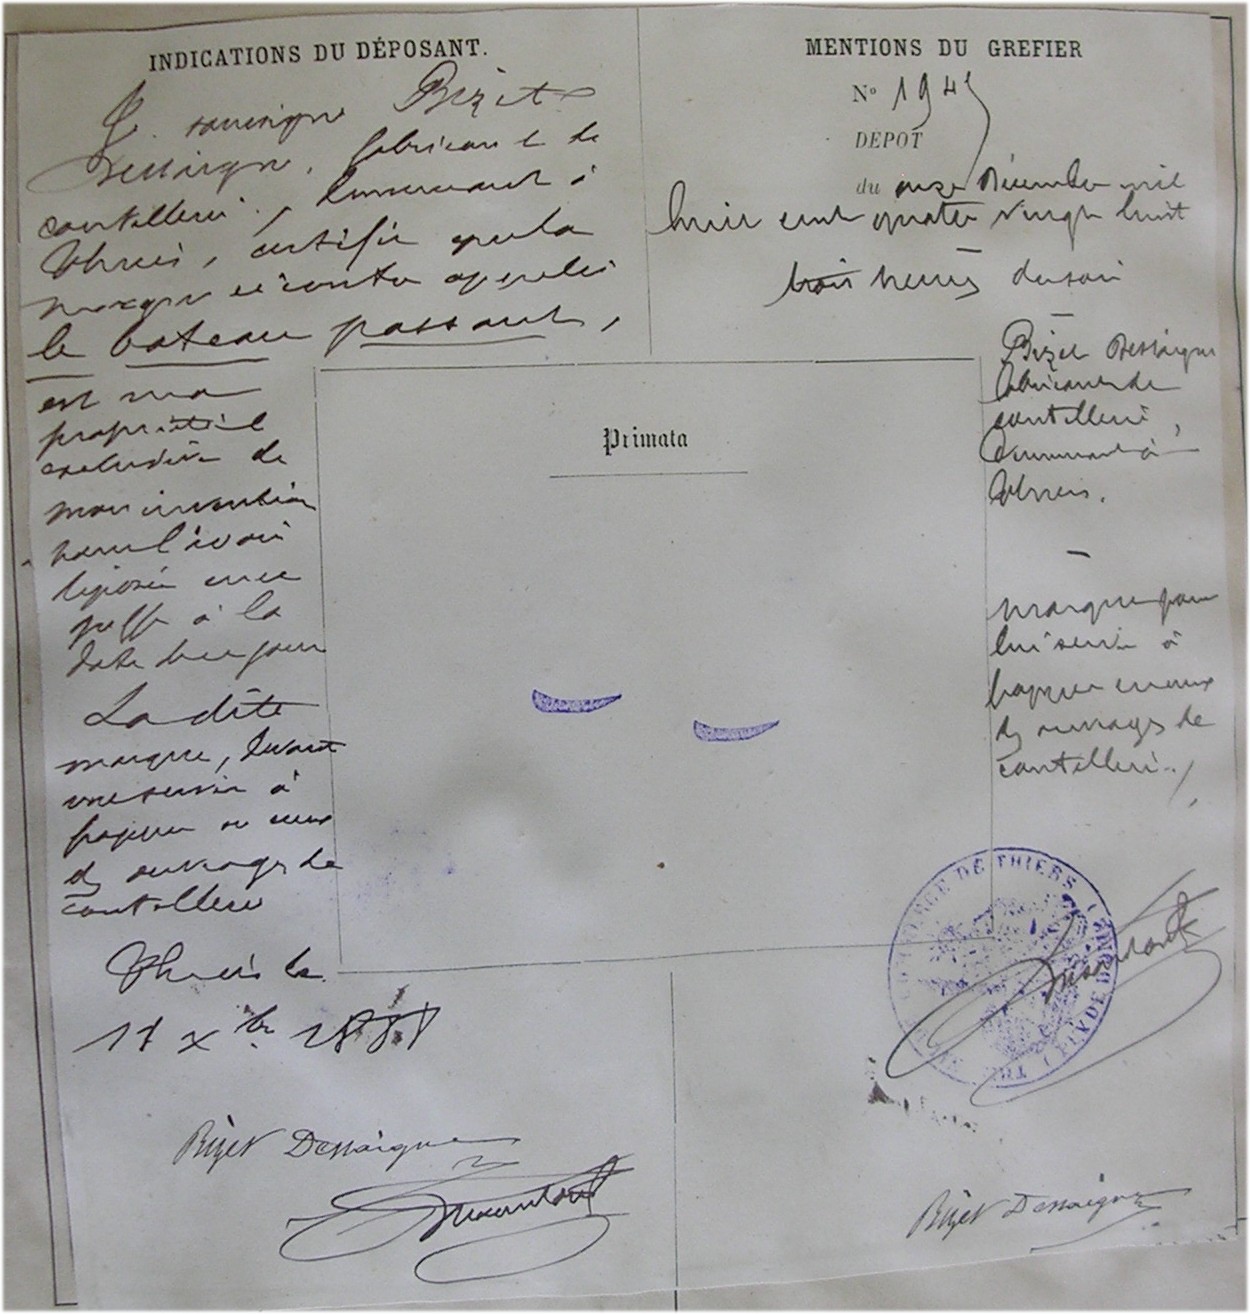 INDICATIONS DU DÉPOSANT.
Je soussigné Bizet
Dessaigne, fabricant de
coutellerie, demeurant à
Thiers, certifie que la
marque ci contre appelée
le bateau passant,
est ma
propriété
exclusive de
mon invention
pour l'avoir
déposée
greffe à la
date de ce jour
La dite
marque, devant
me servir à
frapper
ouvrages de
coutellerie
Thiers le
11 Xbre 1888
Bizet Dessaigne
MENTIONS DU GREFIER
No 194
DEPOT
du onze Décembre mil
huit cent quatre vingt huit
trois heures du soir
Bizet Dessaigne
fabricant de
coutellerie,
demeurant à
Thiers.
marque pour
lui servir à
frapper
ouvrages de
coutellerie.
Primata
COMMERCE DE THIERS (PUY DE DOME)
Bizet Dessaigne